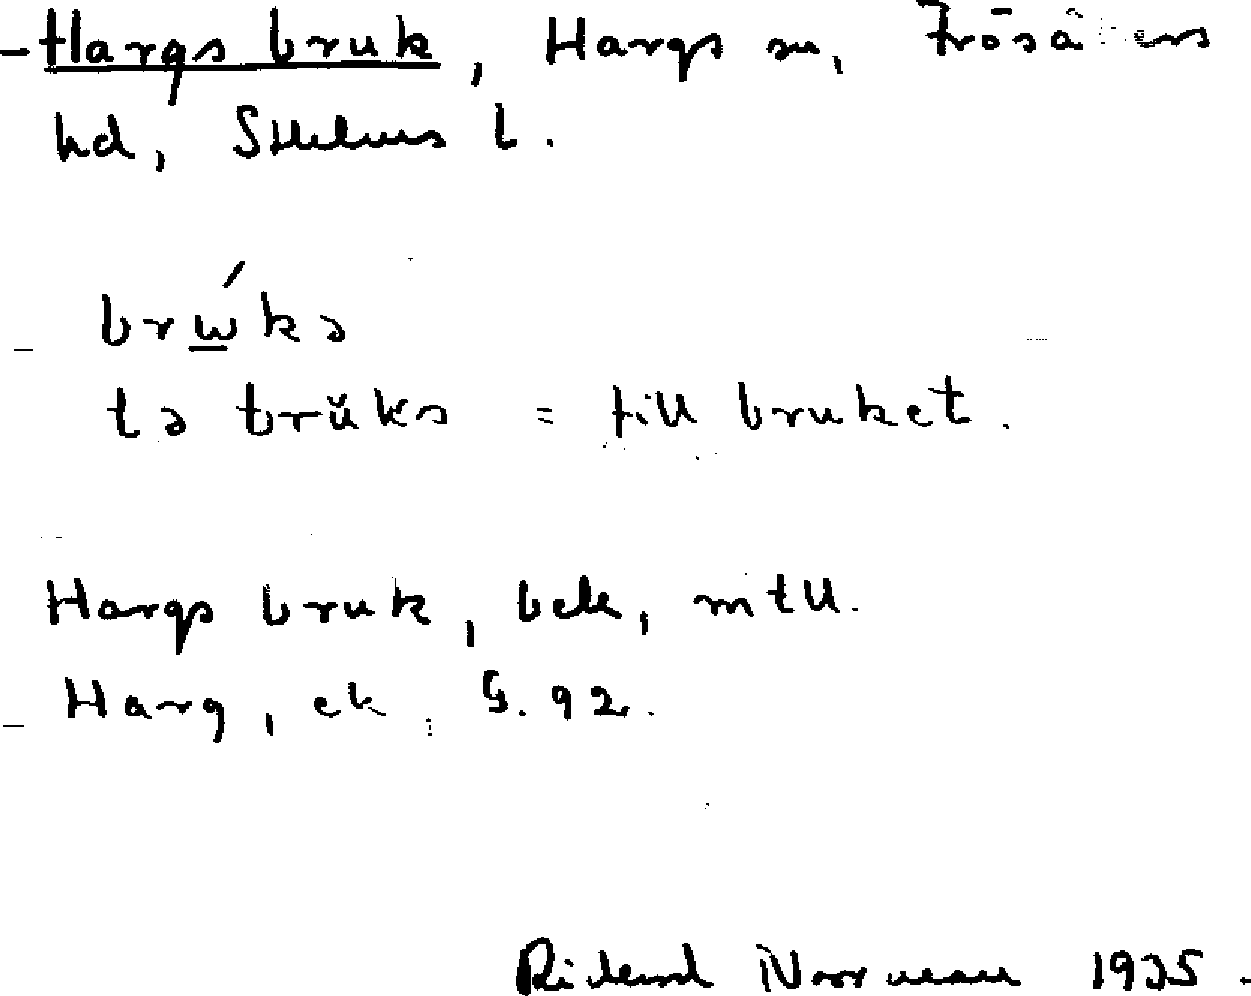 Hargs bruk, Hargs sn, Frösåkers
hd, Sthlms l.
brẃkə
tə brŭks = till bruket.
Hargs bruk, bek, mtU.
Harg, ek, G. 92.
Rickard Norrman 1935.